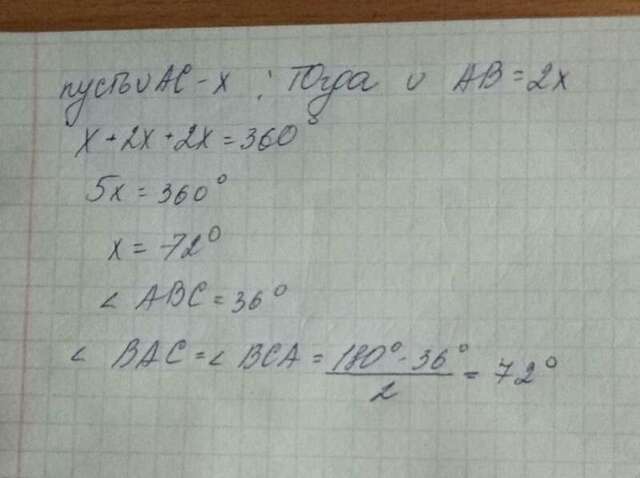 пусть ∪ AC - x ; Тогда ∪ AB = 2x
x + 2x + 2x = 360°
5x = 360°
x = 72°
∠ ABC = 36°
∠ BAC = ∠ BCA = (180° - 36°)/2 = 72°